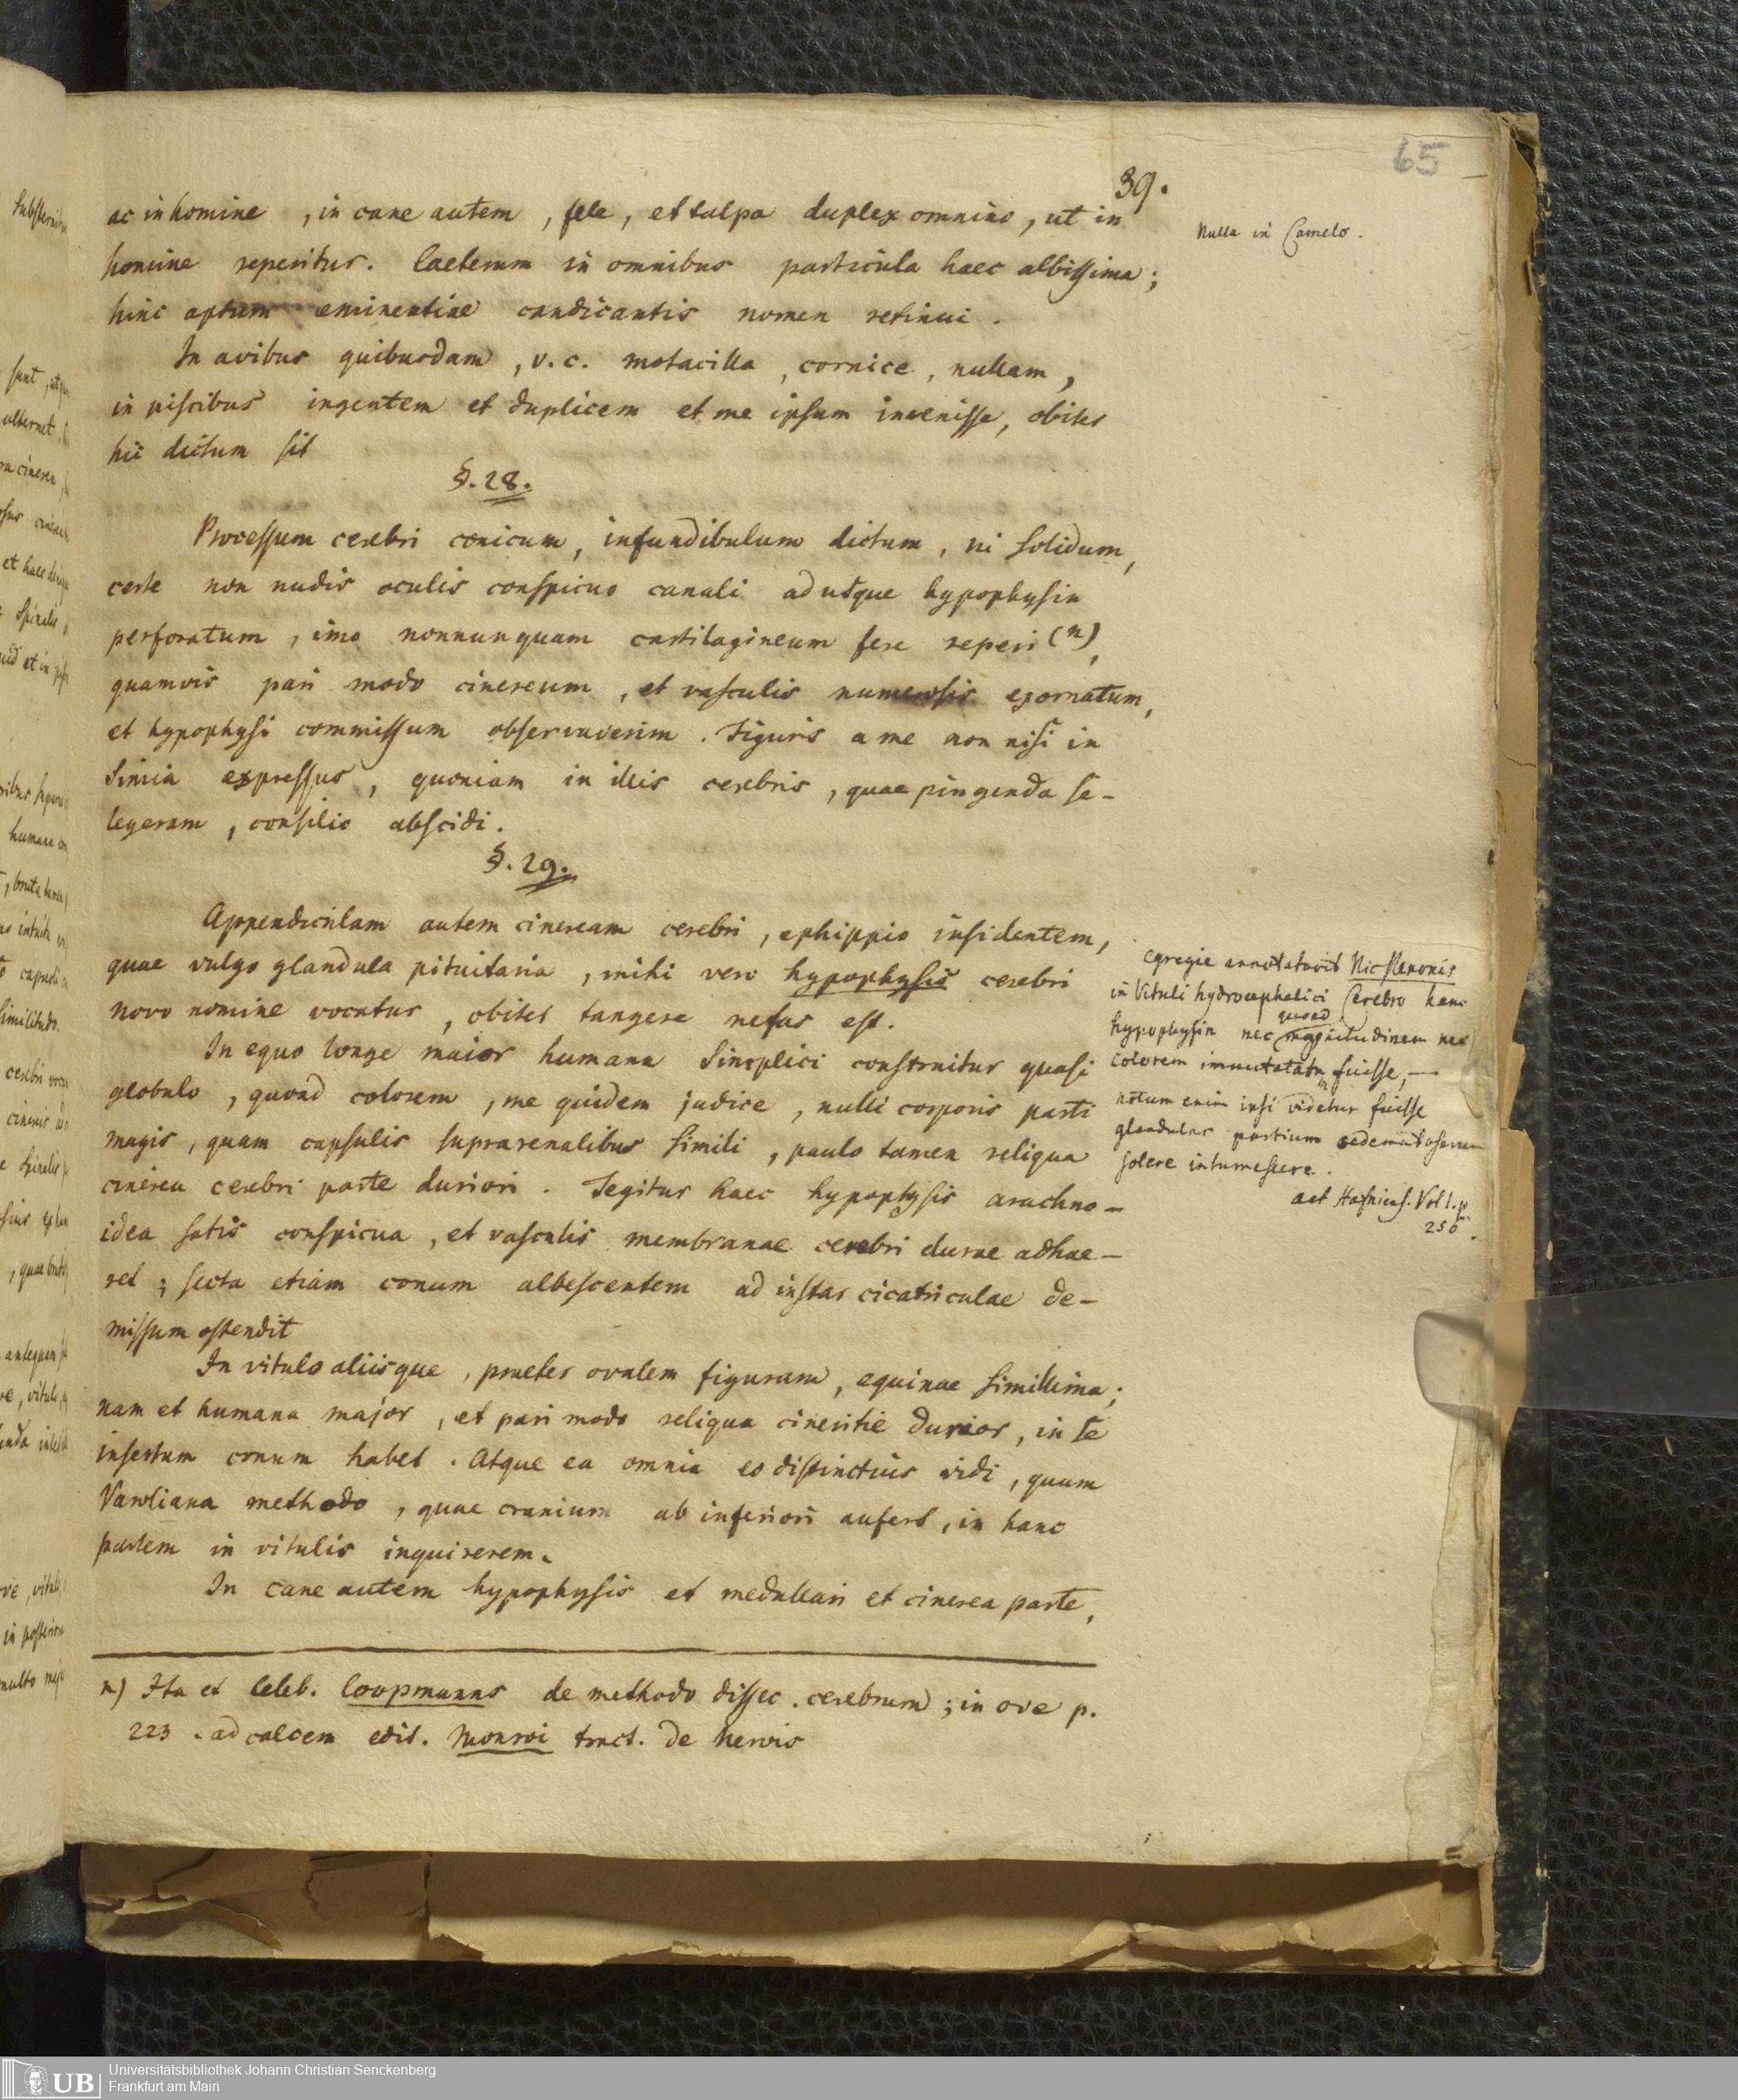 65
39.
ac in homine, in cane autem, fele, et talpa duplex omnino, ut in
homine reperitur. Caeterum in omnibus particula haec albissima;
hinc aptum eminentiae candicantis nomen retinui.
In avibus quibusdam, v. c. motacilla, cornice, nullam,
in piscibus ingentem et duplicem et me ipsum invenisse, obiter
hic dictum sit
§. 28.
Processum cerebri conicum, infundibulum dictum, ni solidum,
certe non nudis oculis conspicuo canali adusque hypophysin
perforatum, imo nonnunquam cartilagineum fere reperi (n),
quamvis pari modo cinereum, et vasculis numerosis exornatum,
et hypophysi commissum observaverim. Figuris a me non nisi in
Simia expressus, quoniam in illis cerebris, quae pingenda se-
legeram, consilio abscidi.
§. 29.
Appendiculam autem cineream cerebri, ephippio insidentem,
quae vulgo glandula pituitaria, mihi vero hypophysis cerebri
novo nomine vocatur, obiter tangere nefas est.
In equo longe maior humana simplici construitur quasi
globulo, quoad colorem, me quidem judice, nulli corporis parti
magis, quam capsulis suprarenalibus simili, paulo tamen reliqua
cinerea cerebri parte duriori. Tegitur haec hypophysis arachno-
idea satis conspicua, et vasculis membranae cerebri durae adhae-
ret; secta etiam conum albescentem ad instar cicatriculae de-
missum ostendit
In vitulo aliisque, praeter ovalem figuram, equinae simillima;
nam et humana major, et pari modo reliqua cineritie durior, in se
insertum conum habet. Atque ea omnia eo distinctius vidi, quum
Varoliana methodo, quae cranium ab inferiori aufert, in hanc
partem in vitulis inquirerem.
In cane autem hypophysis et medullari et cinerea parte,
n) Ita et Celeb. Coopmanns de methodo dissec. cerebrum; in ove p.
223. ad calcem edit. Monroi tract. de nervis
Nulla in Camelo.
egregie annotatavit Nic Stenonis
in Vituli hydrocephalici Cerebro hanc
hypophysin nec quoad magnitudinem nec
colorem immutatam fuisse, —
notum enim ipsi videtur fuisse
glandulas partium oedematosarum
solere intumescere.
act Hafniens. Vol 1. p.
250.
Universitätsbibliothek Johann Christian Senckenberg
Frankfurt am Main
UB